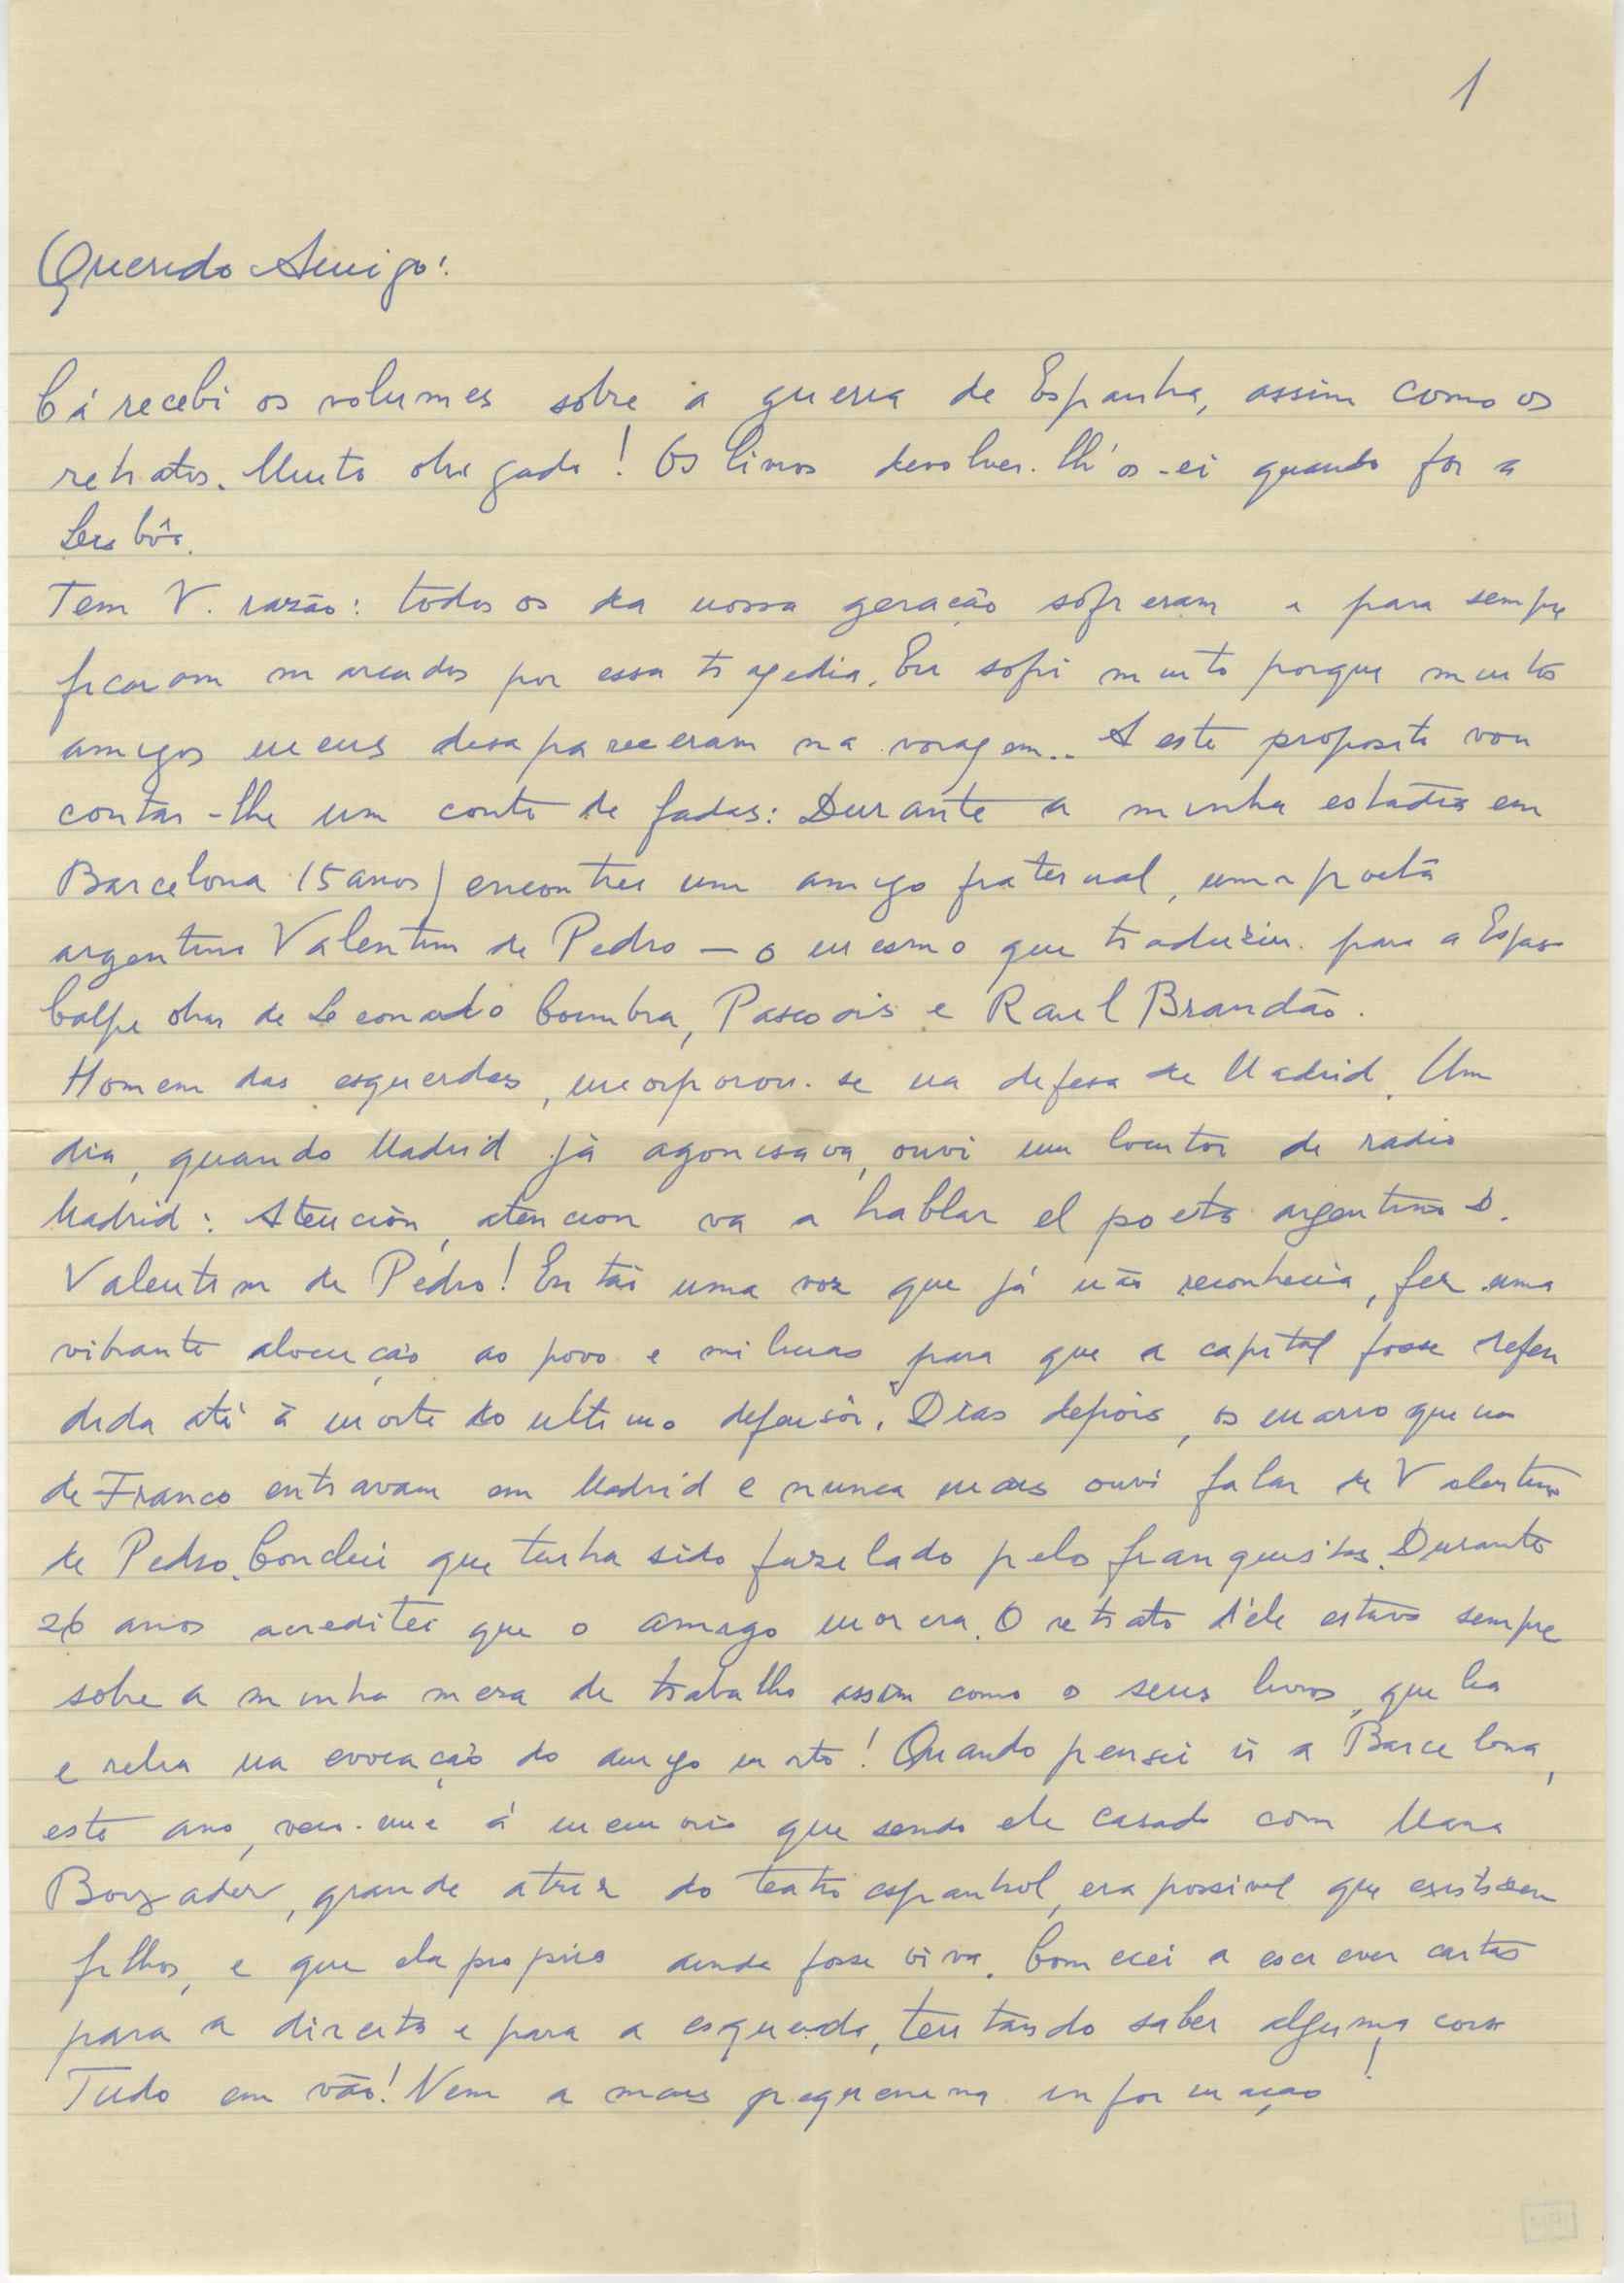 1
Querido Amigo!
Cá recebi os volumes sobre a guerra de Espanha, assim como os
retratos. Muito obrigado! Os livros devolver-lh'os-ei quando for a
Lisbôa.
Tem V. razão: todos os da nossa geração sofreram e para sempre
ficaram marcados por essa tragedia. Eu sofri muito porque muitos
amigos meus desapareceram na voragem.. A este proposito vou
contar-lhe um conto de fadas: Durante a minha estadia em
Barcelona (5 anos) encontrei um amigo fraternal, um poeta
argentino Valentim de Pedro — o mesmo que traduziu para a Espasa
Calpe obras de Leonardo Coimbra, Pascoais e Raul Brandão.
Homem das esquerdas, incorporou-se na defesa de Madrid. Um
dia, quando Madrid já agonisava, ouvi um locutor de radio
Madrid: Atención, atencion va a hablar el poeta argentino D.
Valentim de Pedro! Então uma voz que já não reconhecia, fez uma
vibrante alocução ao povo e milicias para que a capital fosse defen
dida até à morte do ultimo defensôr. Dias depois, os marroquinos
de Franco entravam em Madrid e nunca mais ouvi falar de Valentim
de Pedro. Conclui que tinha sido fuzelado pelo franquistas. Durante
26 anos acreditei que o amigo morera. O retrato d'ele estava sempre
sobre a minha mesa de trabalho assim como o seus livros, que lia
e relia na evocação do amigo morto! Quando pensei ir a Barcelona,
este ano, veiu-me á memoria que sendo ele casado com Maria
grande atriz do teatro espanhol, era possivel que existissem
filhos, e que ela propria ainda fosse viva. Comecei a escrever cartas
para a direita e para a esquerda, tentando saber alguma coisa
Tudo em vão! Nem a mais pequenina informação!